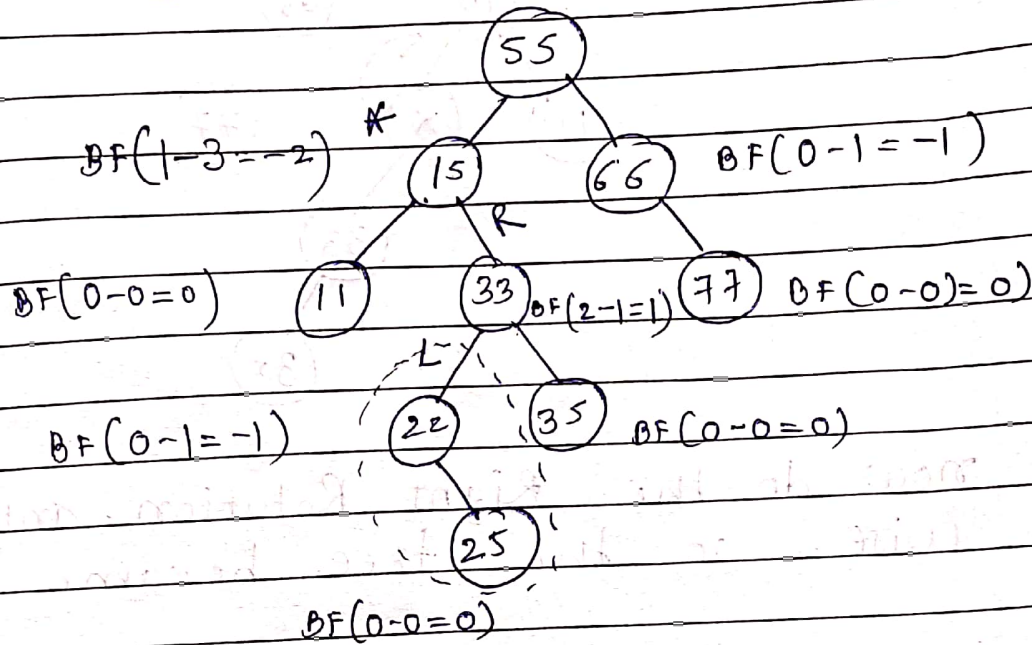 55
BF(1-3=-2) 15 66 BF(0-1=-1)
R
BF(0-0=0) 11 33 BF(2-1=1) 77 BF(0-0)=0)
L
BF(0-1=-1) 22 35 BF(0-0=0)
25
BF(0-0=0)